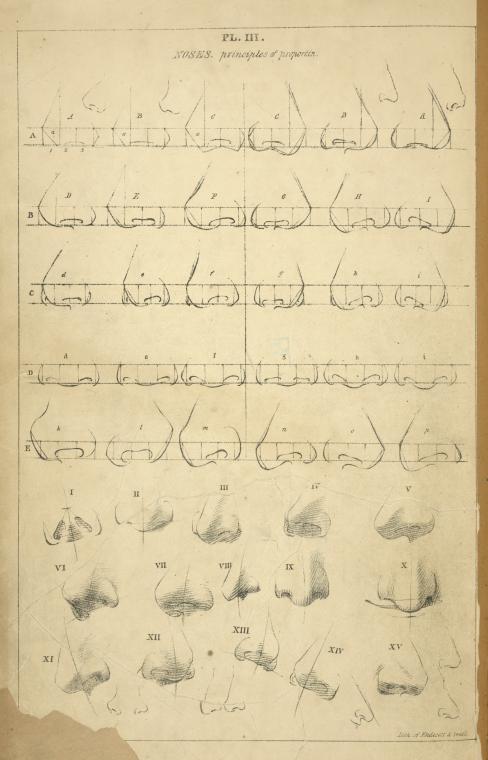 PL. III.
NOSES. principles of proportin.
A B C C B A
A a a a
1 2 3
D E F G H I
B
d e f g h i
C
d e f g h i
D
k l m n o p
E
I II III IV V
VI VII VIII IX X
XI XII XIII XIV XV
Lith. of Endicott &